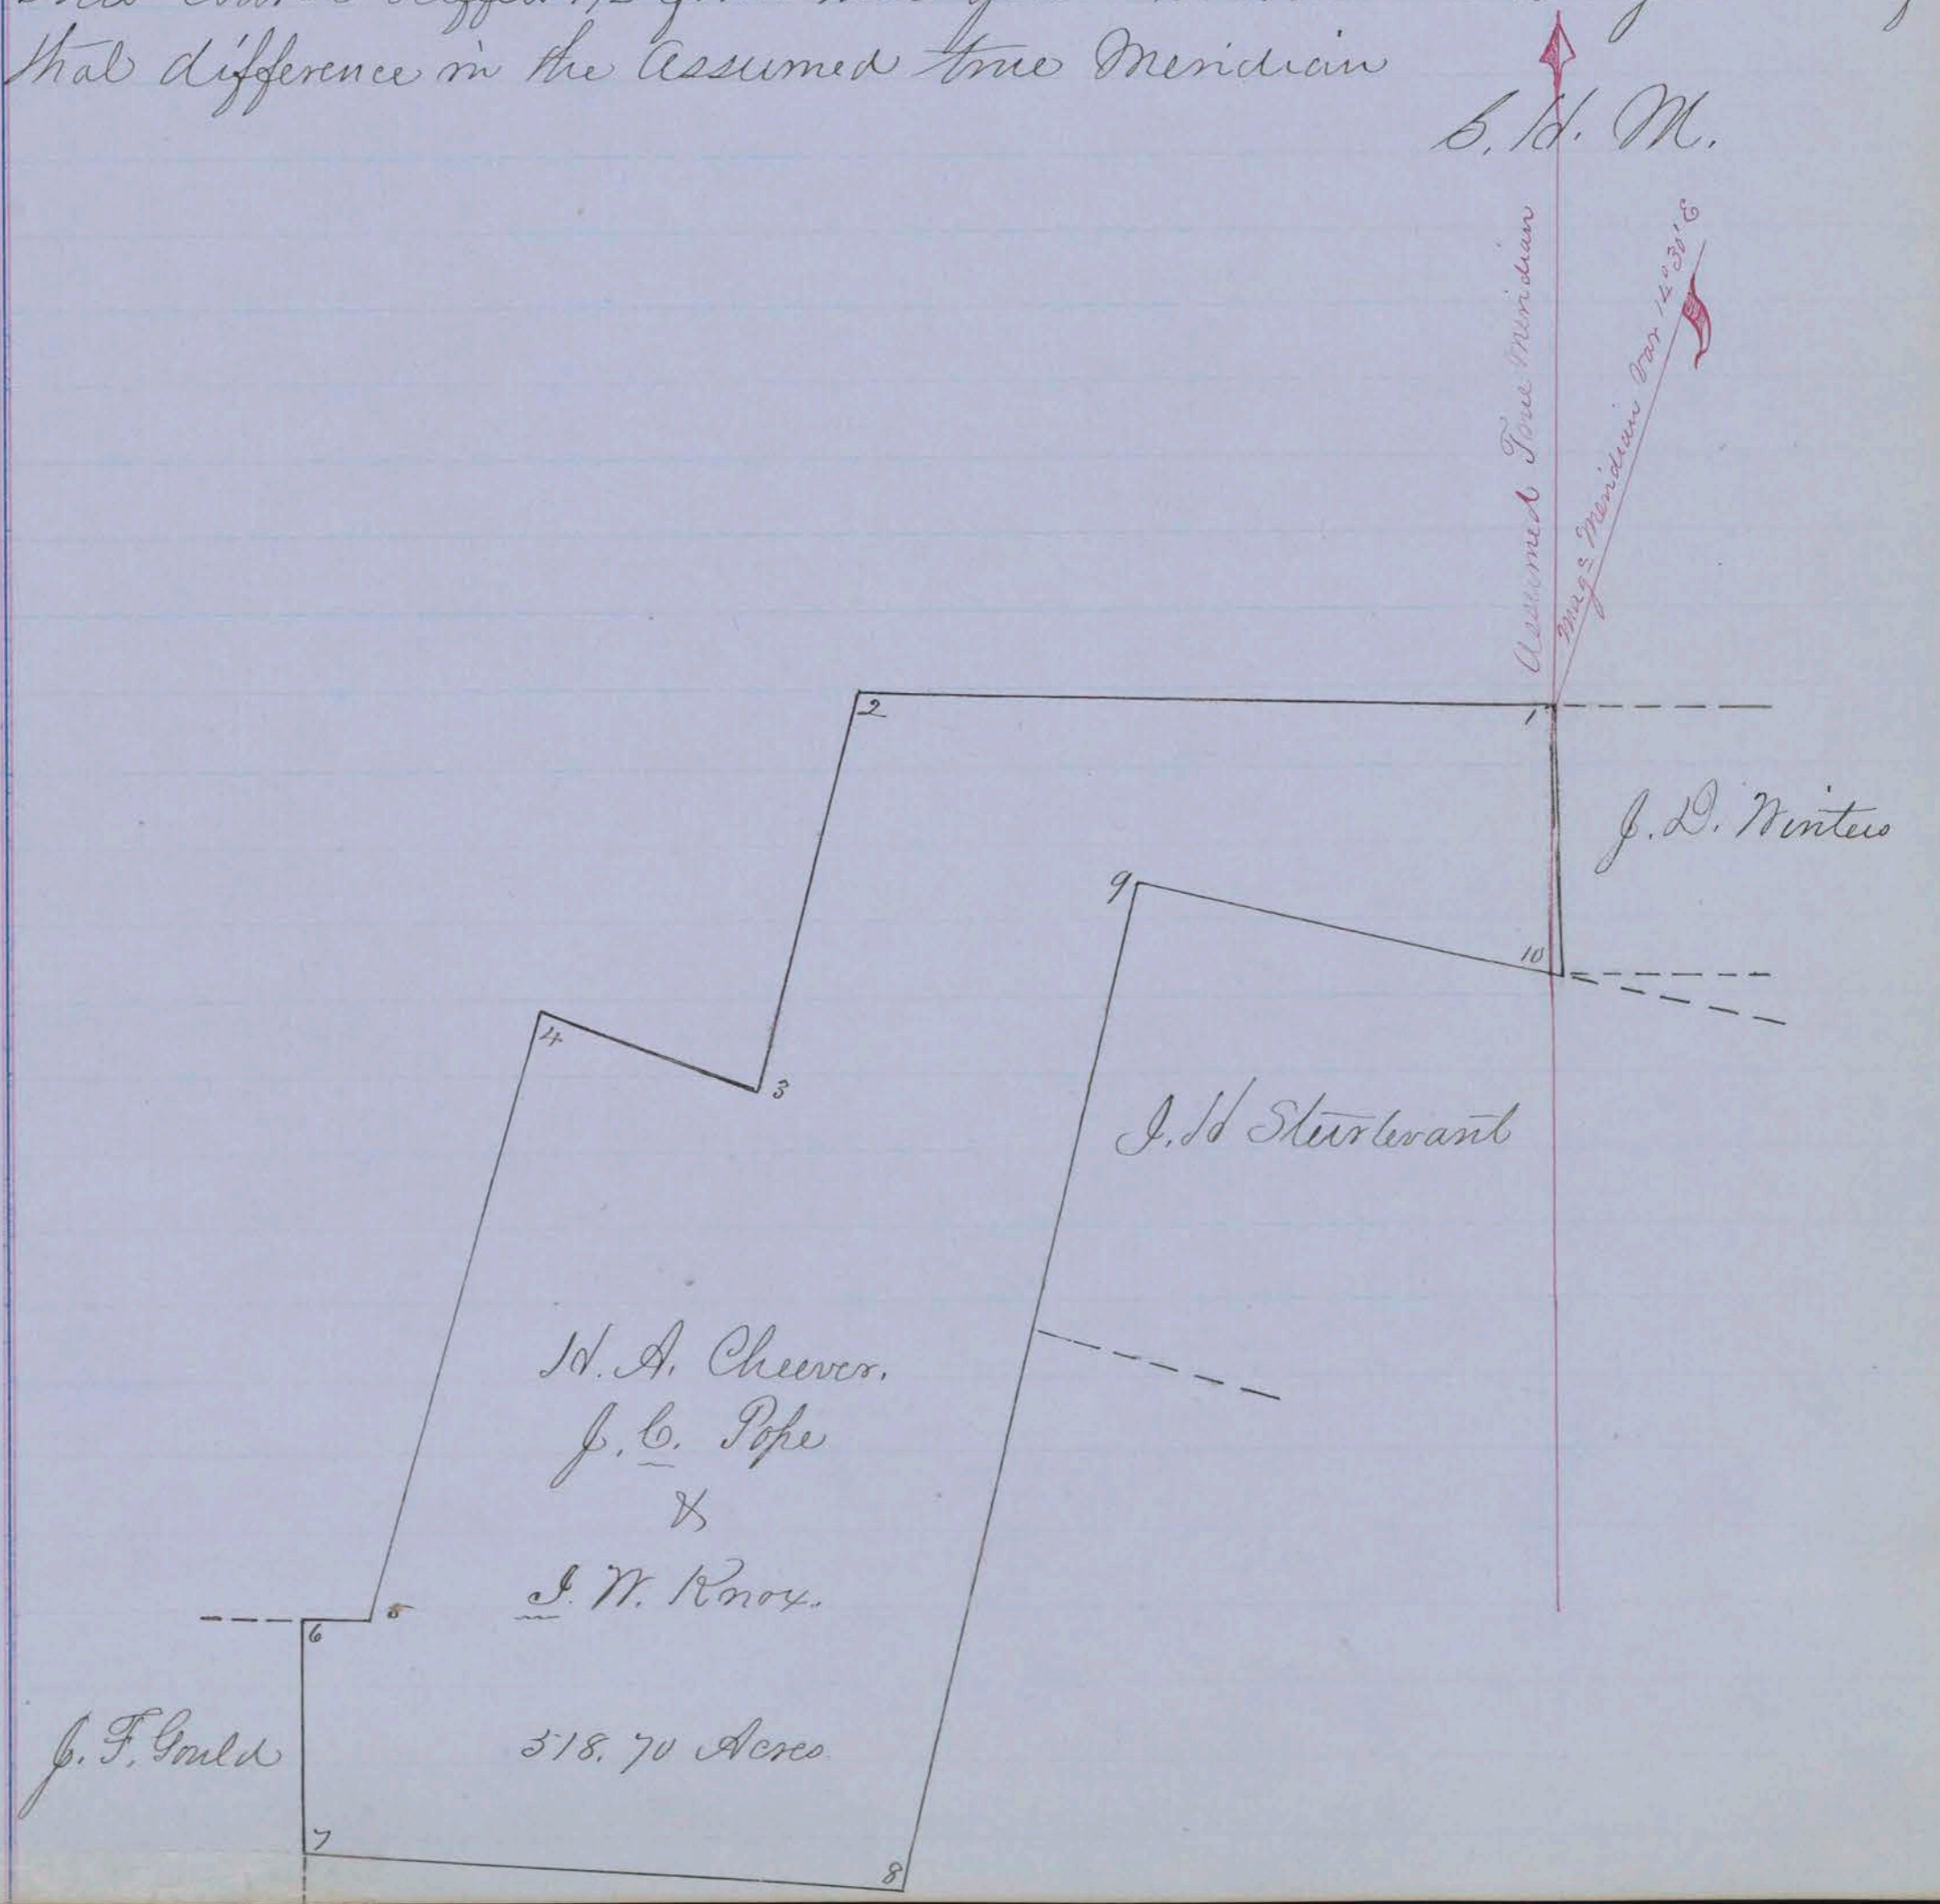 that difference in the assumed true Meridian
C. H. M.
Assumed True Meridian
Magc Meridian Var 14° 30' E
2
1
J. D. Winters
9
10
4
3
J. H Sturtevant
H. A. Cheever.
J. C. Pope
&
J. W. Knox.
5
6
J. F. Gould
518.70 Acres
7
8